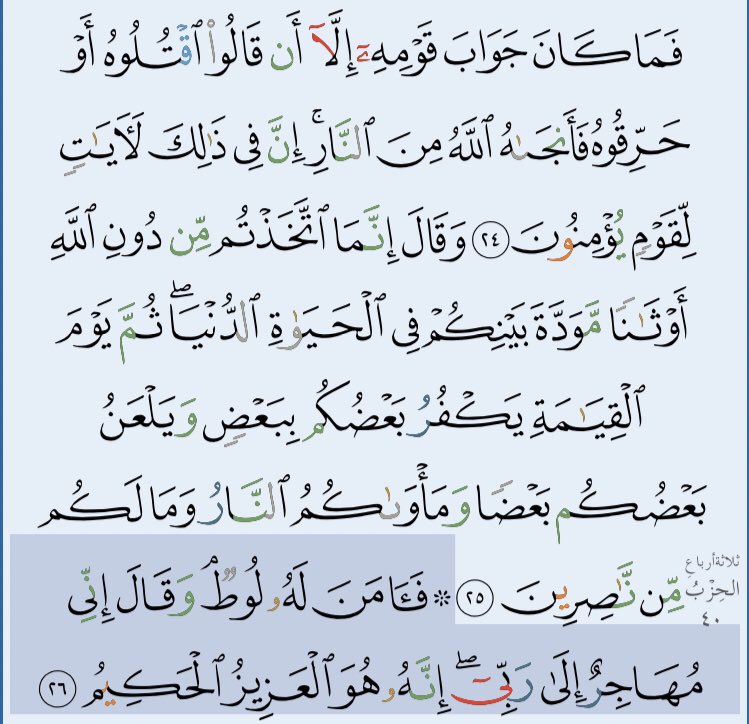 فَمَا كَانَ جَوَابَ قَوْمِهِۦٓ إِلَّآ أَن قَالُوا۟ ٱقْتُلُوهُ أَوْ
حَرِّقُوهُ فَأَنجَىٰهُ ٱللَّهُ مِنَ ٱلنَّارِ ۚ إِنَّ فِى ذَٰلِكَ لَـَٔايَـٰتٍ
لِّقَوْمٍ يُؤْمِنُونَ ٢٤ وَقَالَ إِنَّمَا ٱتَّخَذْتُم مِّن دُونِ ٱللَّهِ
أَوْثَـٰنًا مَّوَدَّةَ بَيْنِكُمْ فِى ٱلْحَيَوٰةِ ٱلدُّنْيَا ۖ ثُمَّ يَوْمَ
ٱلْقِيَـٰمَةِ يَكْفُرُ بَعْضُكُم بِبَعْضٍ وَيَلْعَنُ
بَعْضُكُم بَعْضًا وَمَأْوَىٰكُمُ ٱلنَّارُ وَمَا لَكُم
مِّن نَّـٰصِرِينَ ٢٥ * فَـَٔامَنَ لَهُۥ لُوطٌ ۘ وَقَالَ إِنِّى
ثلاثة أرباع
الحزب
٤٠
مُهَاجِرٌ إِلَىٰ رَبِّىٓ ۖ إِنَّهُۥ هُوَ ٱلْعَزِيزُ ٱلْحَكِيمُ ٢٦